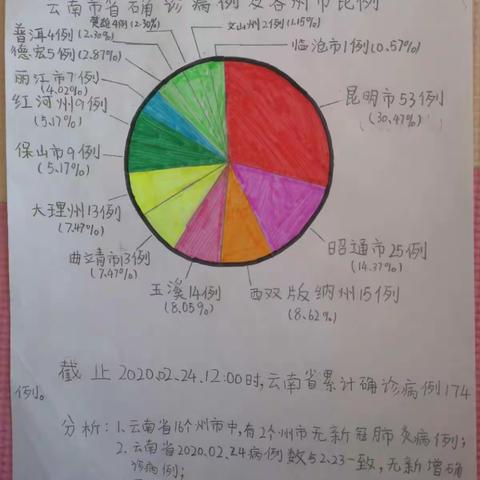 云南市省确诊病例及各州市比例
楚雄4例(2.30%)
文山州2例(1.15%)
普洱4例
(2.30%)
临沧市1例(0.57%)
德宏5例(2.87%)
丽江市7例
(4.02%)
昆明市53例
(30.47%)
红河州9例
(5.17%)
保山市9例
(5.17%)
大理州13例
(7.47%)
昭通市25例
(14.37%)
曲靖市13例
(7.47%)
玉溪14例
(8.05%)
西双版纳州15例
(8.62%)
截止2020.02.24.12:00时,云南省累计确诊病例174
例。
分析:1.云南省16个州市中,有2个州市无新冠肺炎病例;
2.云南省2020.02.24病例数与2.23一致,无新增确
诊病例;